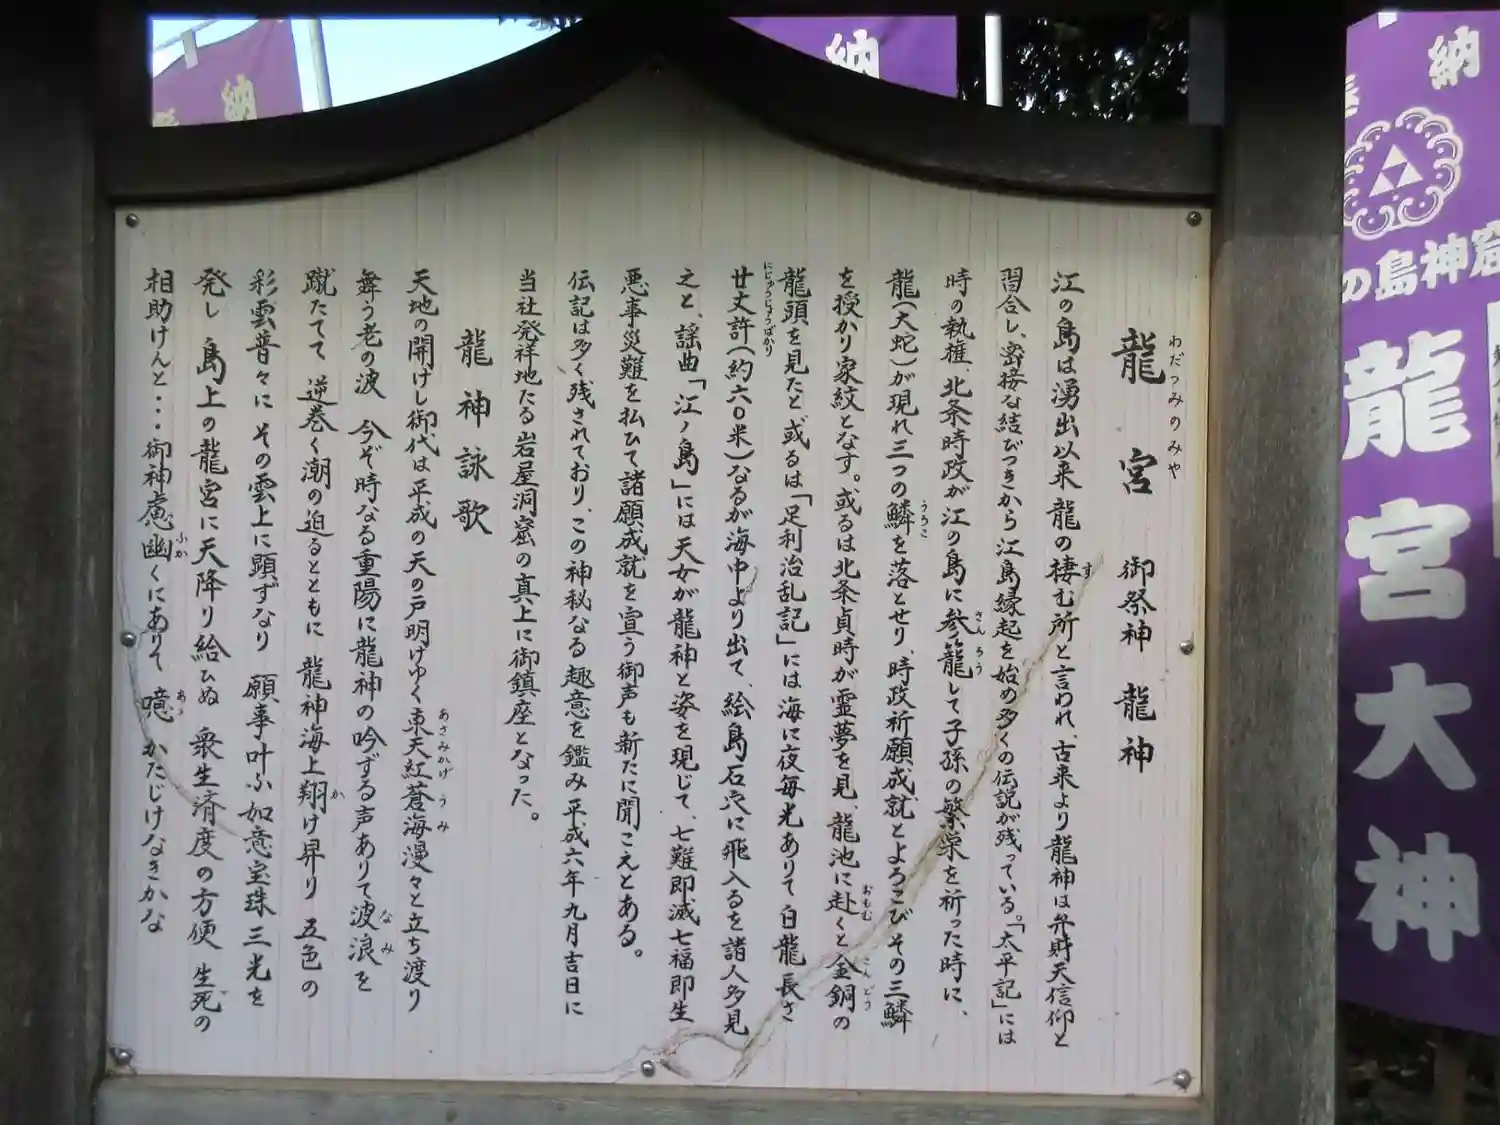 わだつみのみや
龍宮 御祭神 龍神
江の島は湧出以来龍の棲む所と言われ、古来より龍神は弁財天信仰と
習合し、密接な結びつきから江島縁起を始め多くの伝説が残っている。「太平記」には
時の執権、北条時政が江の島に参籠して子孫の繁栄を祈った時に、
龍(大蛇)が現れ三つの鱗を落とせり、時政祈願成就とよろこびその三鱗
を授かり家紋となす。或るは北条貞時が霊夢を見、龍池に赴くと金銅の
龍頭を見たと或るは「足利治乱記」には海に夜毎光ありて白龍長さ
廿丈許(約六〇米)なるが海中より出て、絵島石穴に飛入るを諸人多見
之と、謡曲「江ノ島」には天女が龍神と姿を現じて、七難即滅七福即生
悪事災難を払ひて諸願成就を宣う御声も新たに聞こえとある。
伝記は多く残されており、この神秘なる趣意を鑑み平成六年九月吉日に
当社発祥地たる岩屋洞窟の真上に御鎮座となった。
龍神詠歌
天地の開けし御代は平成の天の戸明けゆく東天紅蒼海漫々と立ち渡り
舞う老の波 今ぞ時なる重陽に龍神の吟ずる声ありて波浪を
蹴たてて 逆巻く潮の迫るとともに 龍神海上翔け昇り 五色の
彩雲普々に その雲上に顕ずなり 願事叶ふ如意宝珠三光を
発し 島上の龍宮に天降り給ひぬ 衆生済度の方便 生死の
相助けんと・・・御神慮幽くにありて 噫 かたじけなきかな
納
納
奉納
の島神窟
龍宮大神